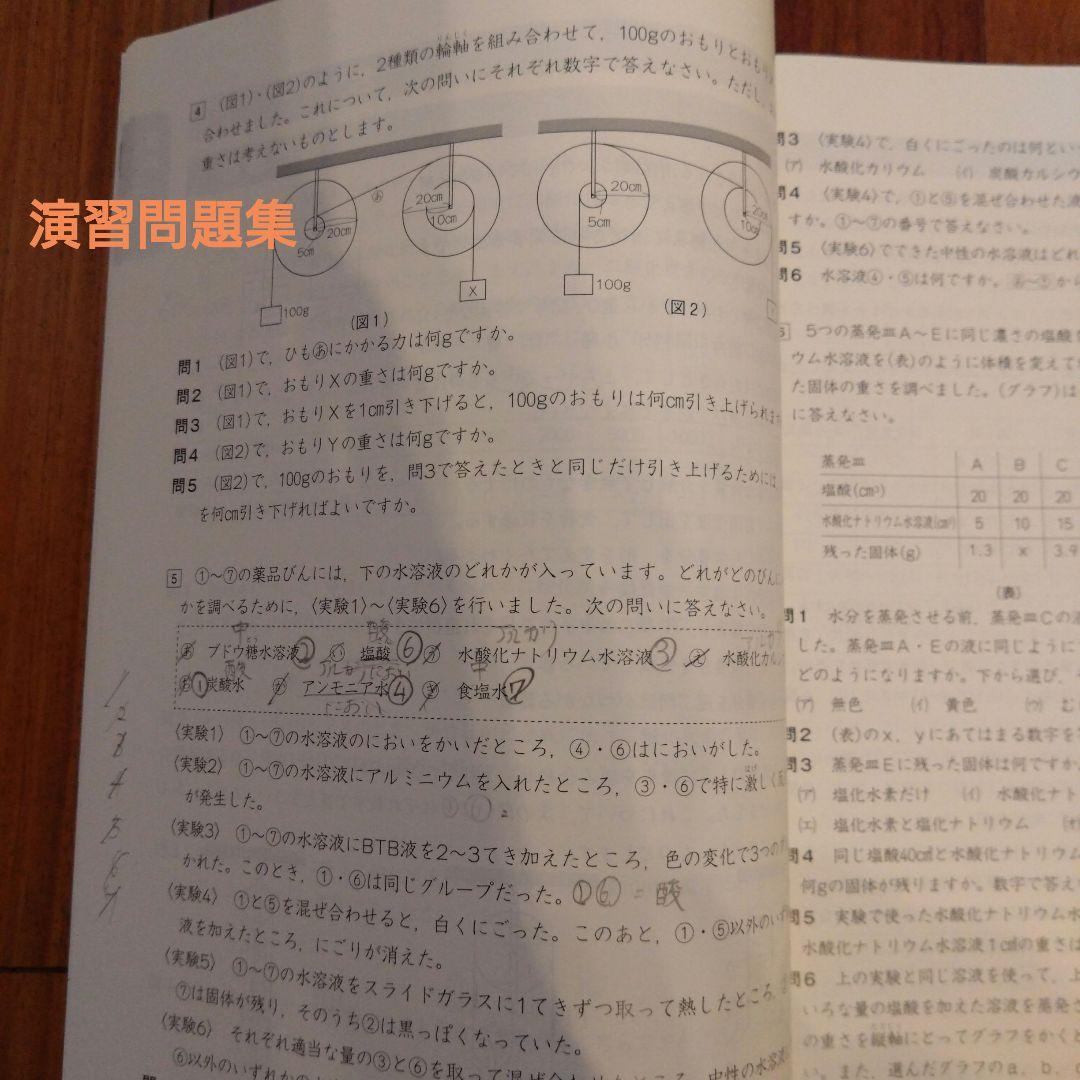 4 (図1)・(図2)のように，2種類の輪軸を組み合わせて，100gのおもりとおもり
りんじく
合わせました。これについて，次の問いにそれぞれ数字で答えなさい。ただし，
重さは考えないものとします。
演習問題集
20cm
5cm
あ
20cm
10cm
100g
X
(図1)
20cm
5cm
20cm
10cm
100g
(図2)
問1 (図1)で，ひもあにかかる力は何gですか。
問2 (図1)で，おもりXの重さは何gですか。
問3 (図1)で，おもりXを1cm引き下げると，100gのおもりは何cm引き上げられま
問4 (図2)で，おもりYの重さは何gですか。
問5 (図2)で，100gのおもりを，問3で答えたときと同じだけ引き上げるためには
を何cm引き下げればよいですか。
5 ①〜⑦の薬品びんには，下の水溶液のどれかが入っています。どれがどのびんに
かを調べるために，〈実験1〉〜〈実験6〉を行いました。次の問いに答えなさい。
中 酸 アルカリ
ブドウ糖水溶液② 塩酸⑥ 水酸化ナトリウム水溶液③ 水酸化カル
酸 中
①炭酸水 アンモニア水④ 食塩水⑦
におい
〈実験1〉 ①〜⑦の水溶液のにおいをかいだところ，④・⑥はにおいがした。
〈実験2〉 ①〜⑦の水溶液にアルミニウムを入れたところ，③・⑥で特に激しく
はげ
が発生した。
〈実験3〉 ①〜⑦の水溶液にBTB液を2〜3てき加えたところ，色の変化で3つの
かれた。このとき，①・⑥は同じグループだった。①⑥=酸
〈実験4〉 ①と⑤を混ぜ合わせると，白くにごった。このあと，①・⑤以外のいず
液を加えたところ，にごりが消えた。
〈実験5〉 ①〜⑦の水溶液をスライドガラスに1てきずつ取って熱したところ，
⑦は固体が残り，そのうち②は黒っぽくなっていた。
〈実験6〉 それぞれ適当な量の③と⑥を取って混ぜ合わせたところ，中性の水溶液
⑥以外のいずれかの
1
2
3
4
5
6
7
問3 〈実験4〉で，白くにごったのは何とい
(ア) 水酸化カリウム (イ) 炭酸カルシウ
問4 〈実験4〉で，①と⑤を混ぜ合わせた液
すか。①〜⑦の番号で答えなさい。
問5 〈実験6〉でできた中性の水溶液はどれ
問6 水溶液④・⑤は何ですか。
5つの蒸発皿A〜Eに同じ濃さの塩酸
ウム水溶液を(表)のように体積を変えて
た固体の重さを調べました。(グラフ)は
に答えなさい。
蒸発皿 A B C
塩酸(cm³) 20 20 20
水酸化ナトリウム水溶液(cm³) 5 10 15
残った固体(g) 1.3 x 3.9
(表)
問1 水分を蒸発させる前，蒸発皿Cの
した。蒸発皿A・Eの液に同じように
どのようになりますか。下から選び，
(ア) 無色 (イ) 黄色 (ウ) む
問2 (表)のx，yにあてはまる数字を
問3 蒸発皿Eに残った固体は何ですか
(ア) 塩化水素だけ (イ) 水酸化ナト
(エ) 塩化水素と塩化ナトリウム
問4 同じ塩酸40cm³と水酸化ナトリウム
何gの固体が残りますか。数字で答え
問5 実験で使った水酸化ナトリウム水
水酸化ナトリウム水溶液1cm³の重さは
問6 上の実験と同じ溶液を使って，上
いろな量の塩酸を加えた溶液を蒸発さ
の重さを縦軸にとってグラフをかくと
た，選んだグラフのa，b，c